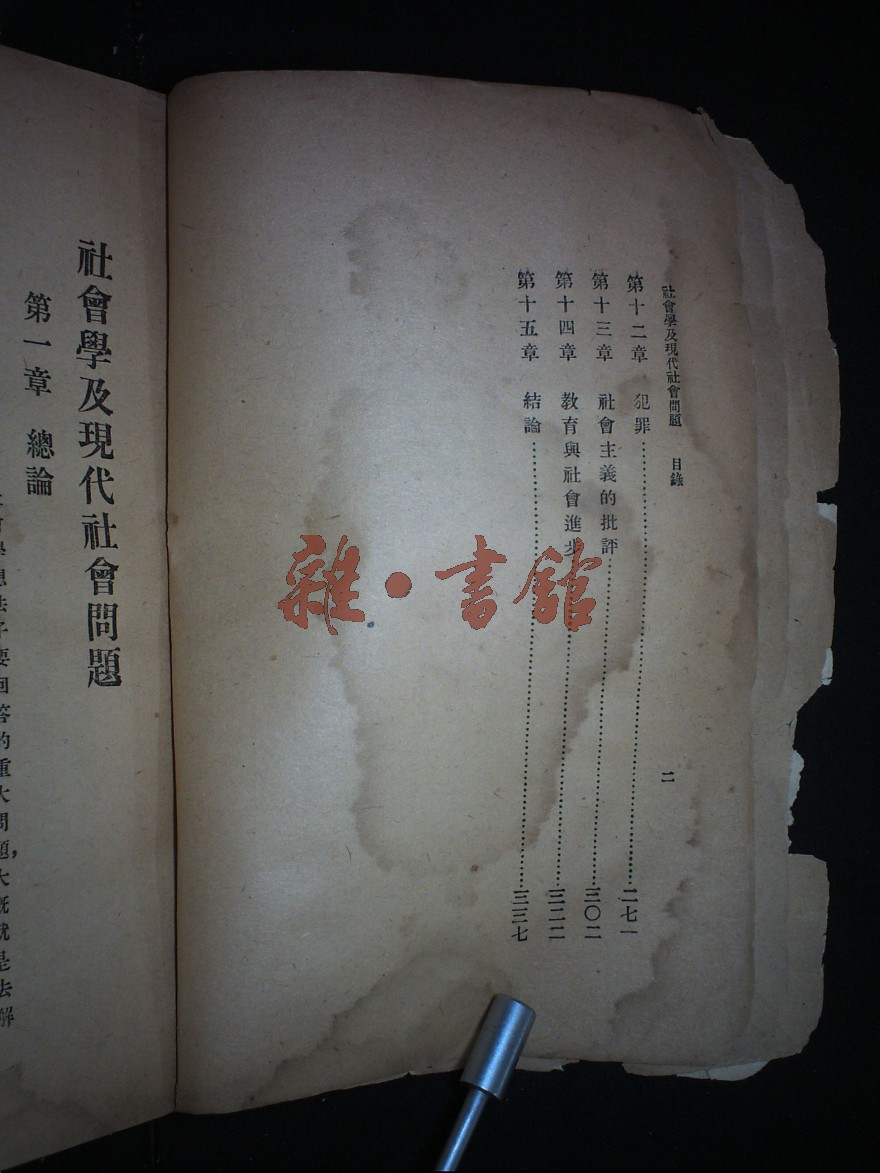 社會學及現代社會問題 目錄
二
第十二章 犯罪…………二七一
第十三章 社會主義的批評…………三〇二
第十四章 教育與社會進步…………三二二
第十五章 結論…………三三七
社會學及現代社會問題
第一章 總論
會學想法子要回答的重大問題，大概就是去解
雜•書館